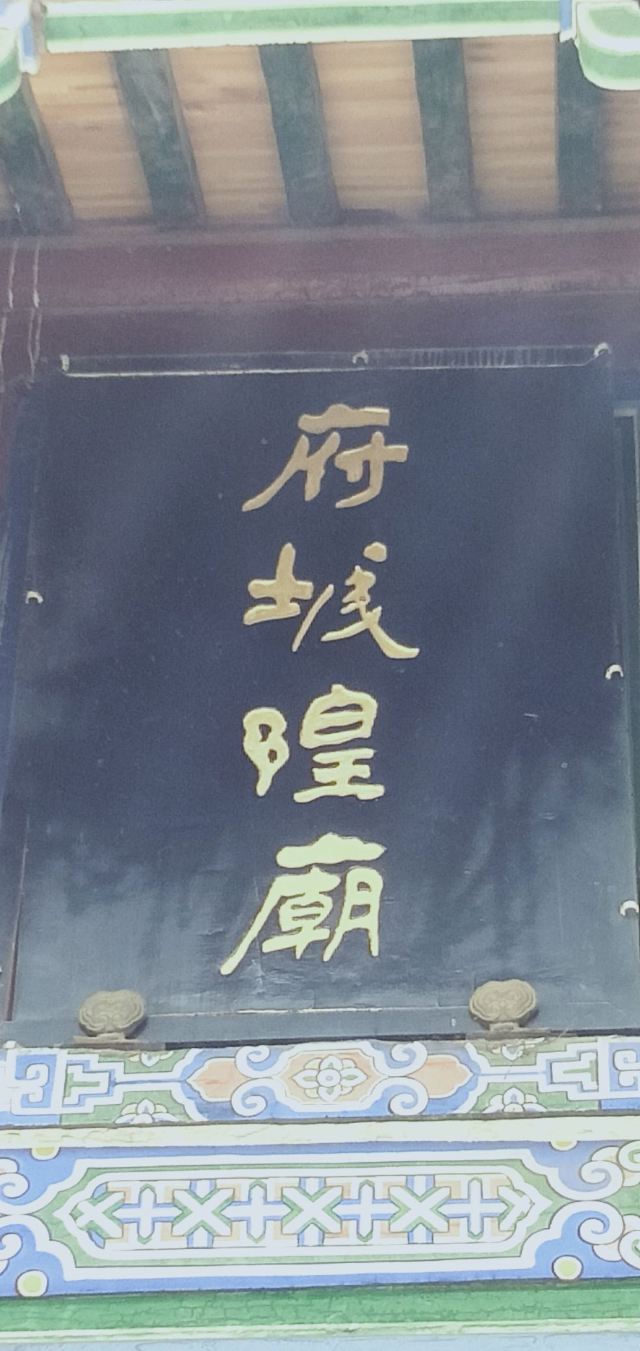 府城隍廟